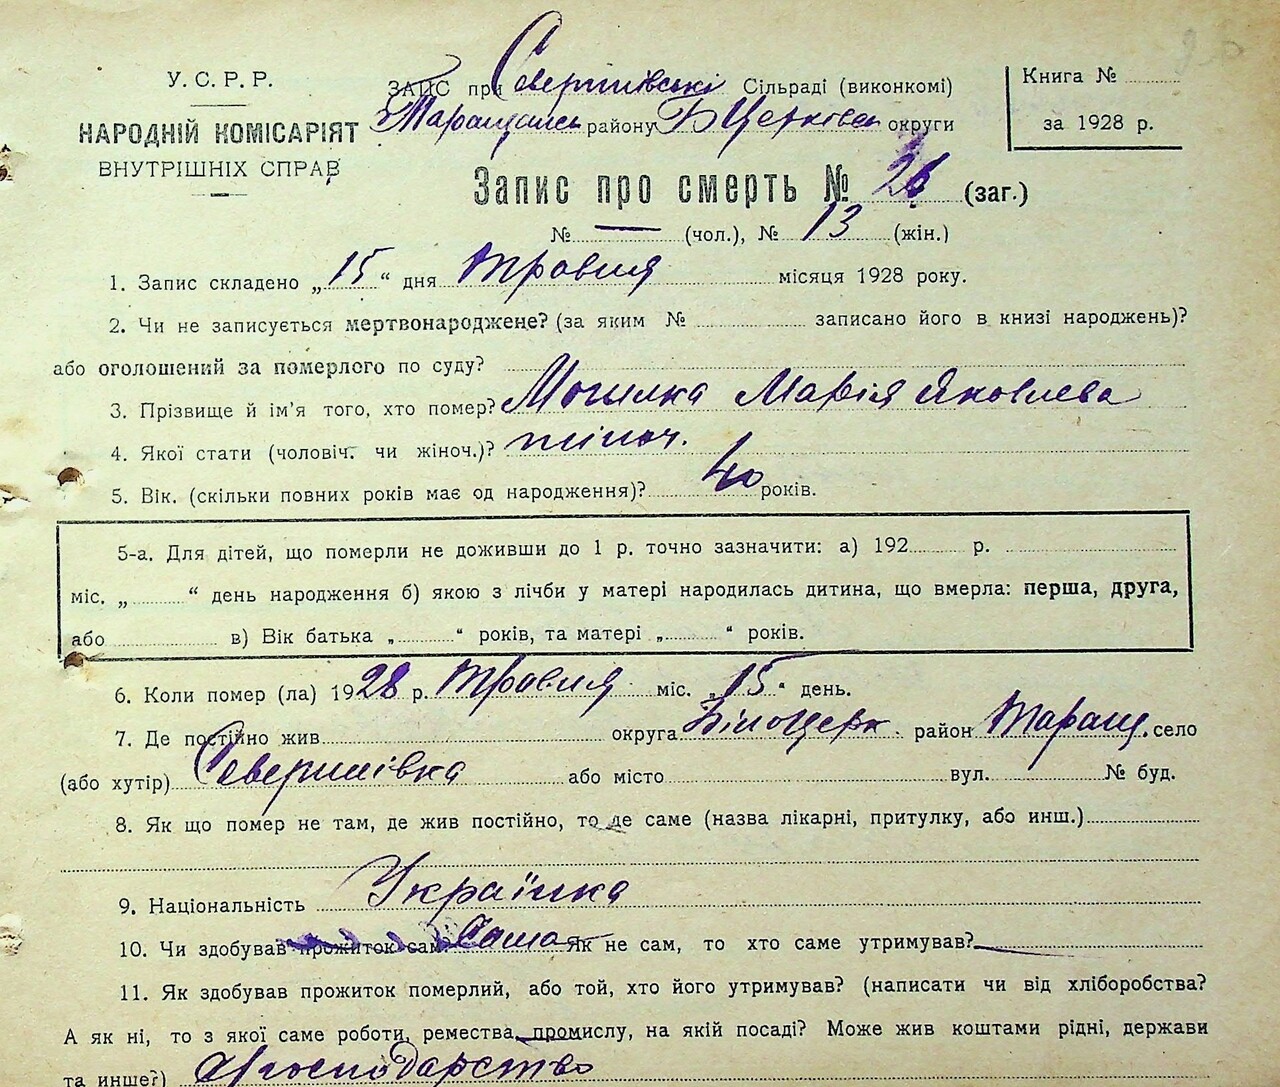 У.С.Р.Р.
НАРОДНІЙ КОМІСАРІЯТ
ВНУТРІШНІХ СПРАВ
ЗАПИС при Северинівські Сільраді (виконкомі)
Таращансь району Б Церковсь округи
Книга №
за 1928 р.
Запис про смерть № 26 (заг.)
№ — (чол.), № 13 (жін.)
1. Запис складено „15“ дня травня місяця 1928 року.
2. Чи не записується мертвонароджене? (за яким № записано його в книзі народжень)?
або оголошений за померлого по суду?
3. Прізвище й ім'я того, хто помер? Могилка Марія Яковлева
4. Якої стати (чоловіч. чи жіноч.)? жіноч.
5. Вік. (скільки повних років має од народження)? 40 років.
5-а. Для дітей, що померли не доживши до 1 р. точно зазначити: а) 192 р.
міс. „ “ день народження б) якою з лічби у матері народилась дитина, що вмерла: перша, друга,
або в) Вік батька „ “ років, та матері „ “ років.
6. Коли помер (ла) 1928 р. травня міс. „15“ день.
7. Де постійно жив округа Білоцерк. район Таращ. село
(або хутір) Северинівка або місто вул. № буд.
8. Як що помер не там, де жив постійно, то де саме (назва лікарні, притулку, або инш.)
9. Національність Українка
10. Чи здобував прожиток сам Сама Як не сам, то хто саме утримував? —
11. Як здобував прожиток померлий, або той, хто його утримував? (написати чи від хліборобства?
А як ні, то з якої саме роботи, ремества, промислу, на якій посаді? Може жив коштами рідні, держави
та инше?) господарство